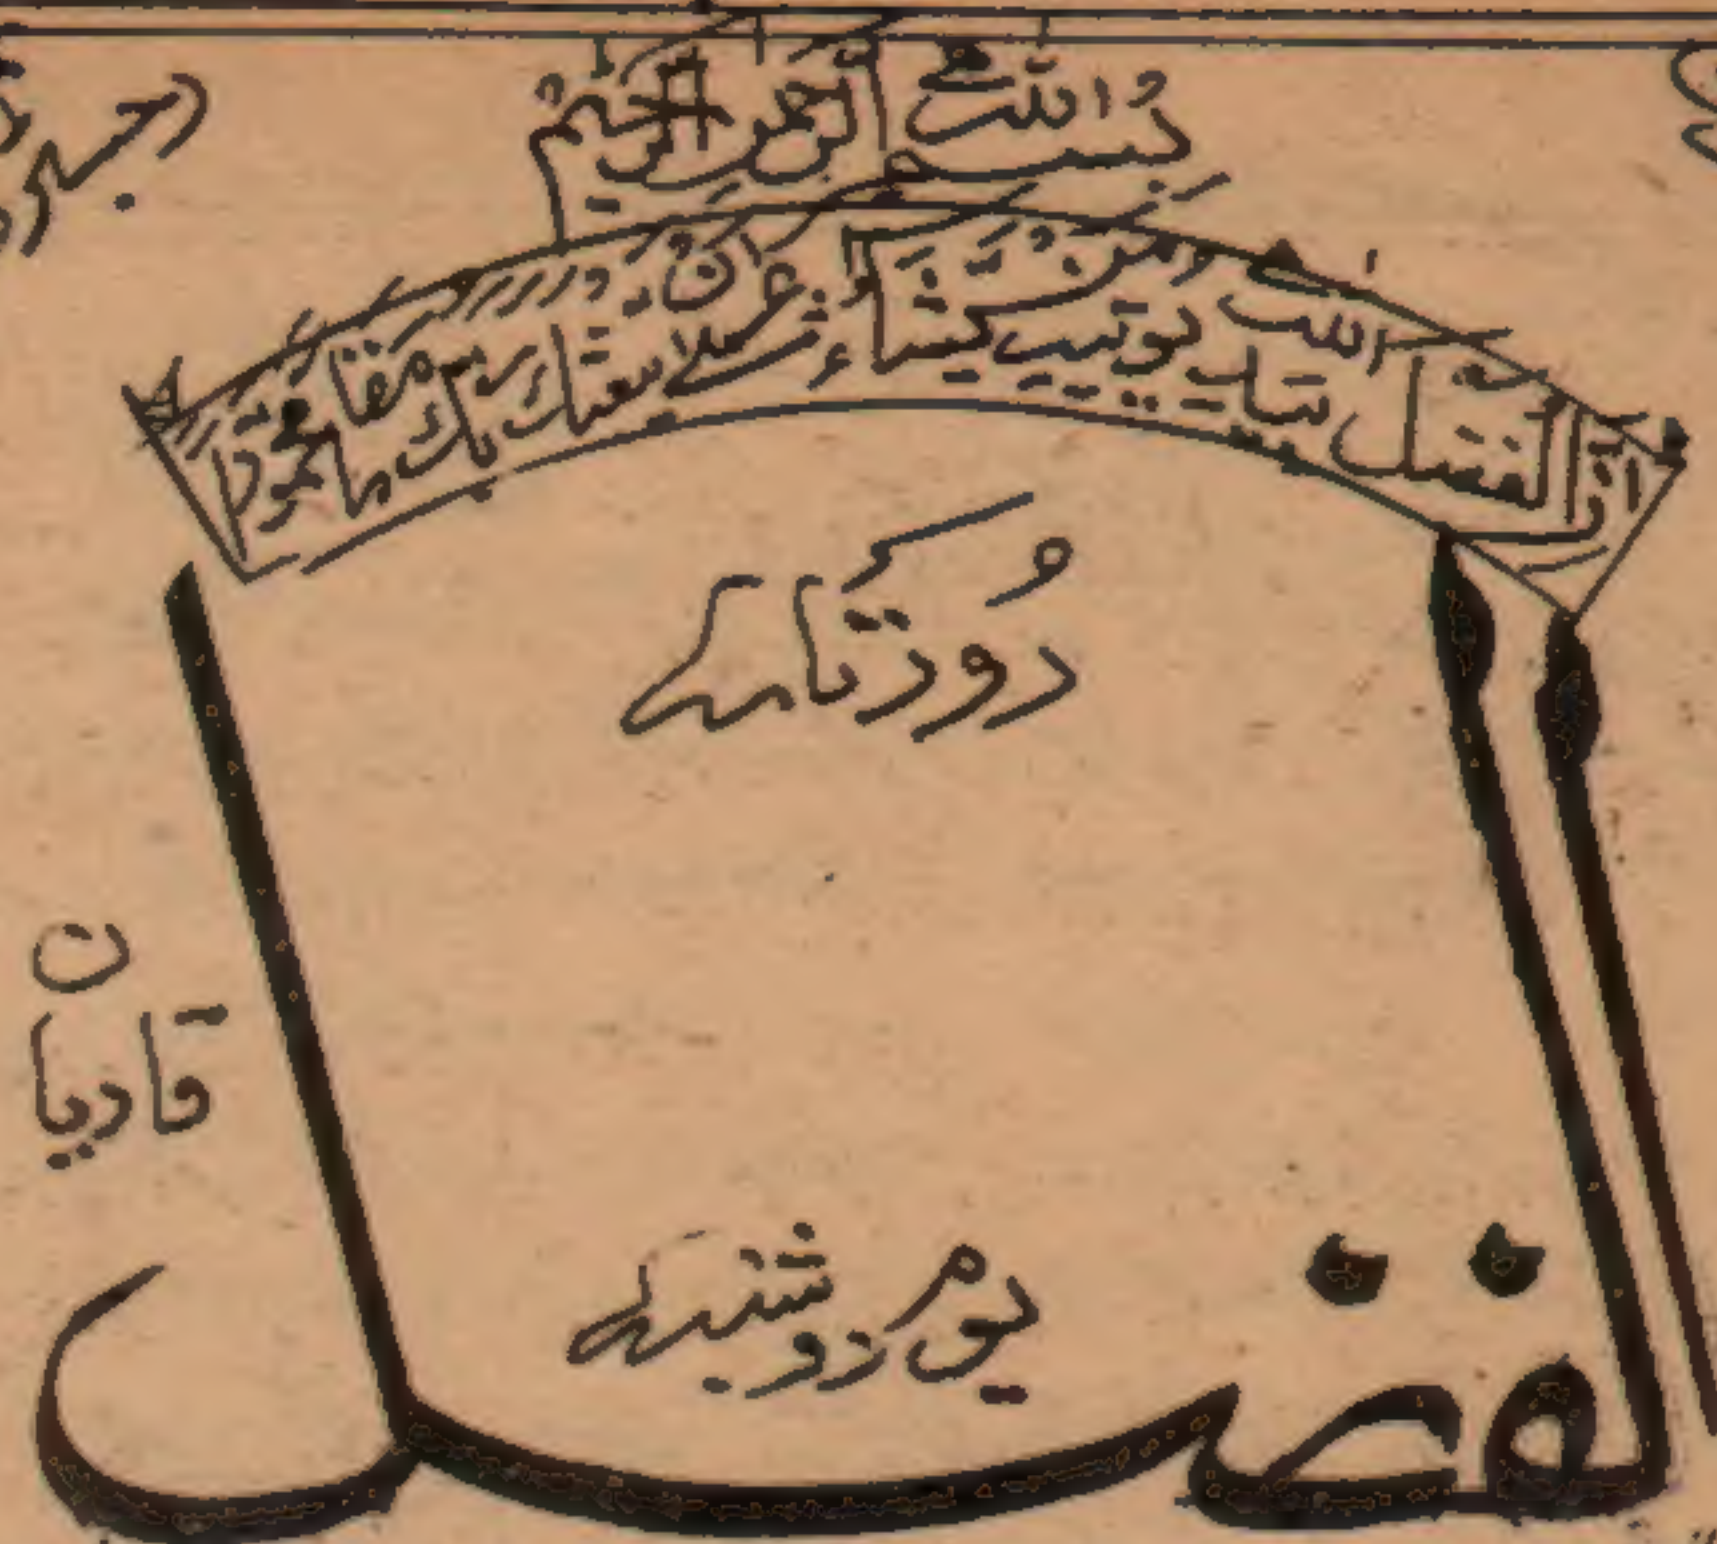 بسم اللہ الرحمن الرحیم
ان الفضل بید اللہ یؤتیہ من یشاء عسیٰ ان یبعثک ربک مقاما محمودا
روزنامہ
قادیان
یوم دوشنبہ
الفضل